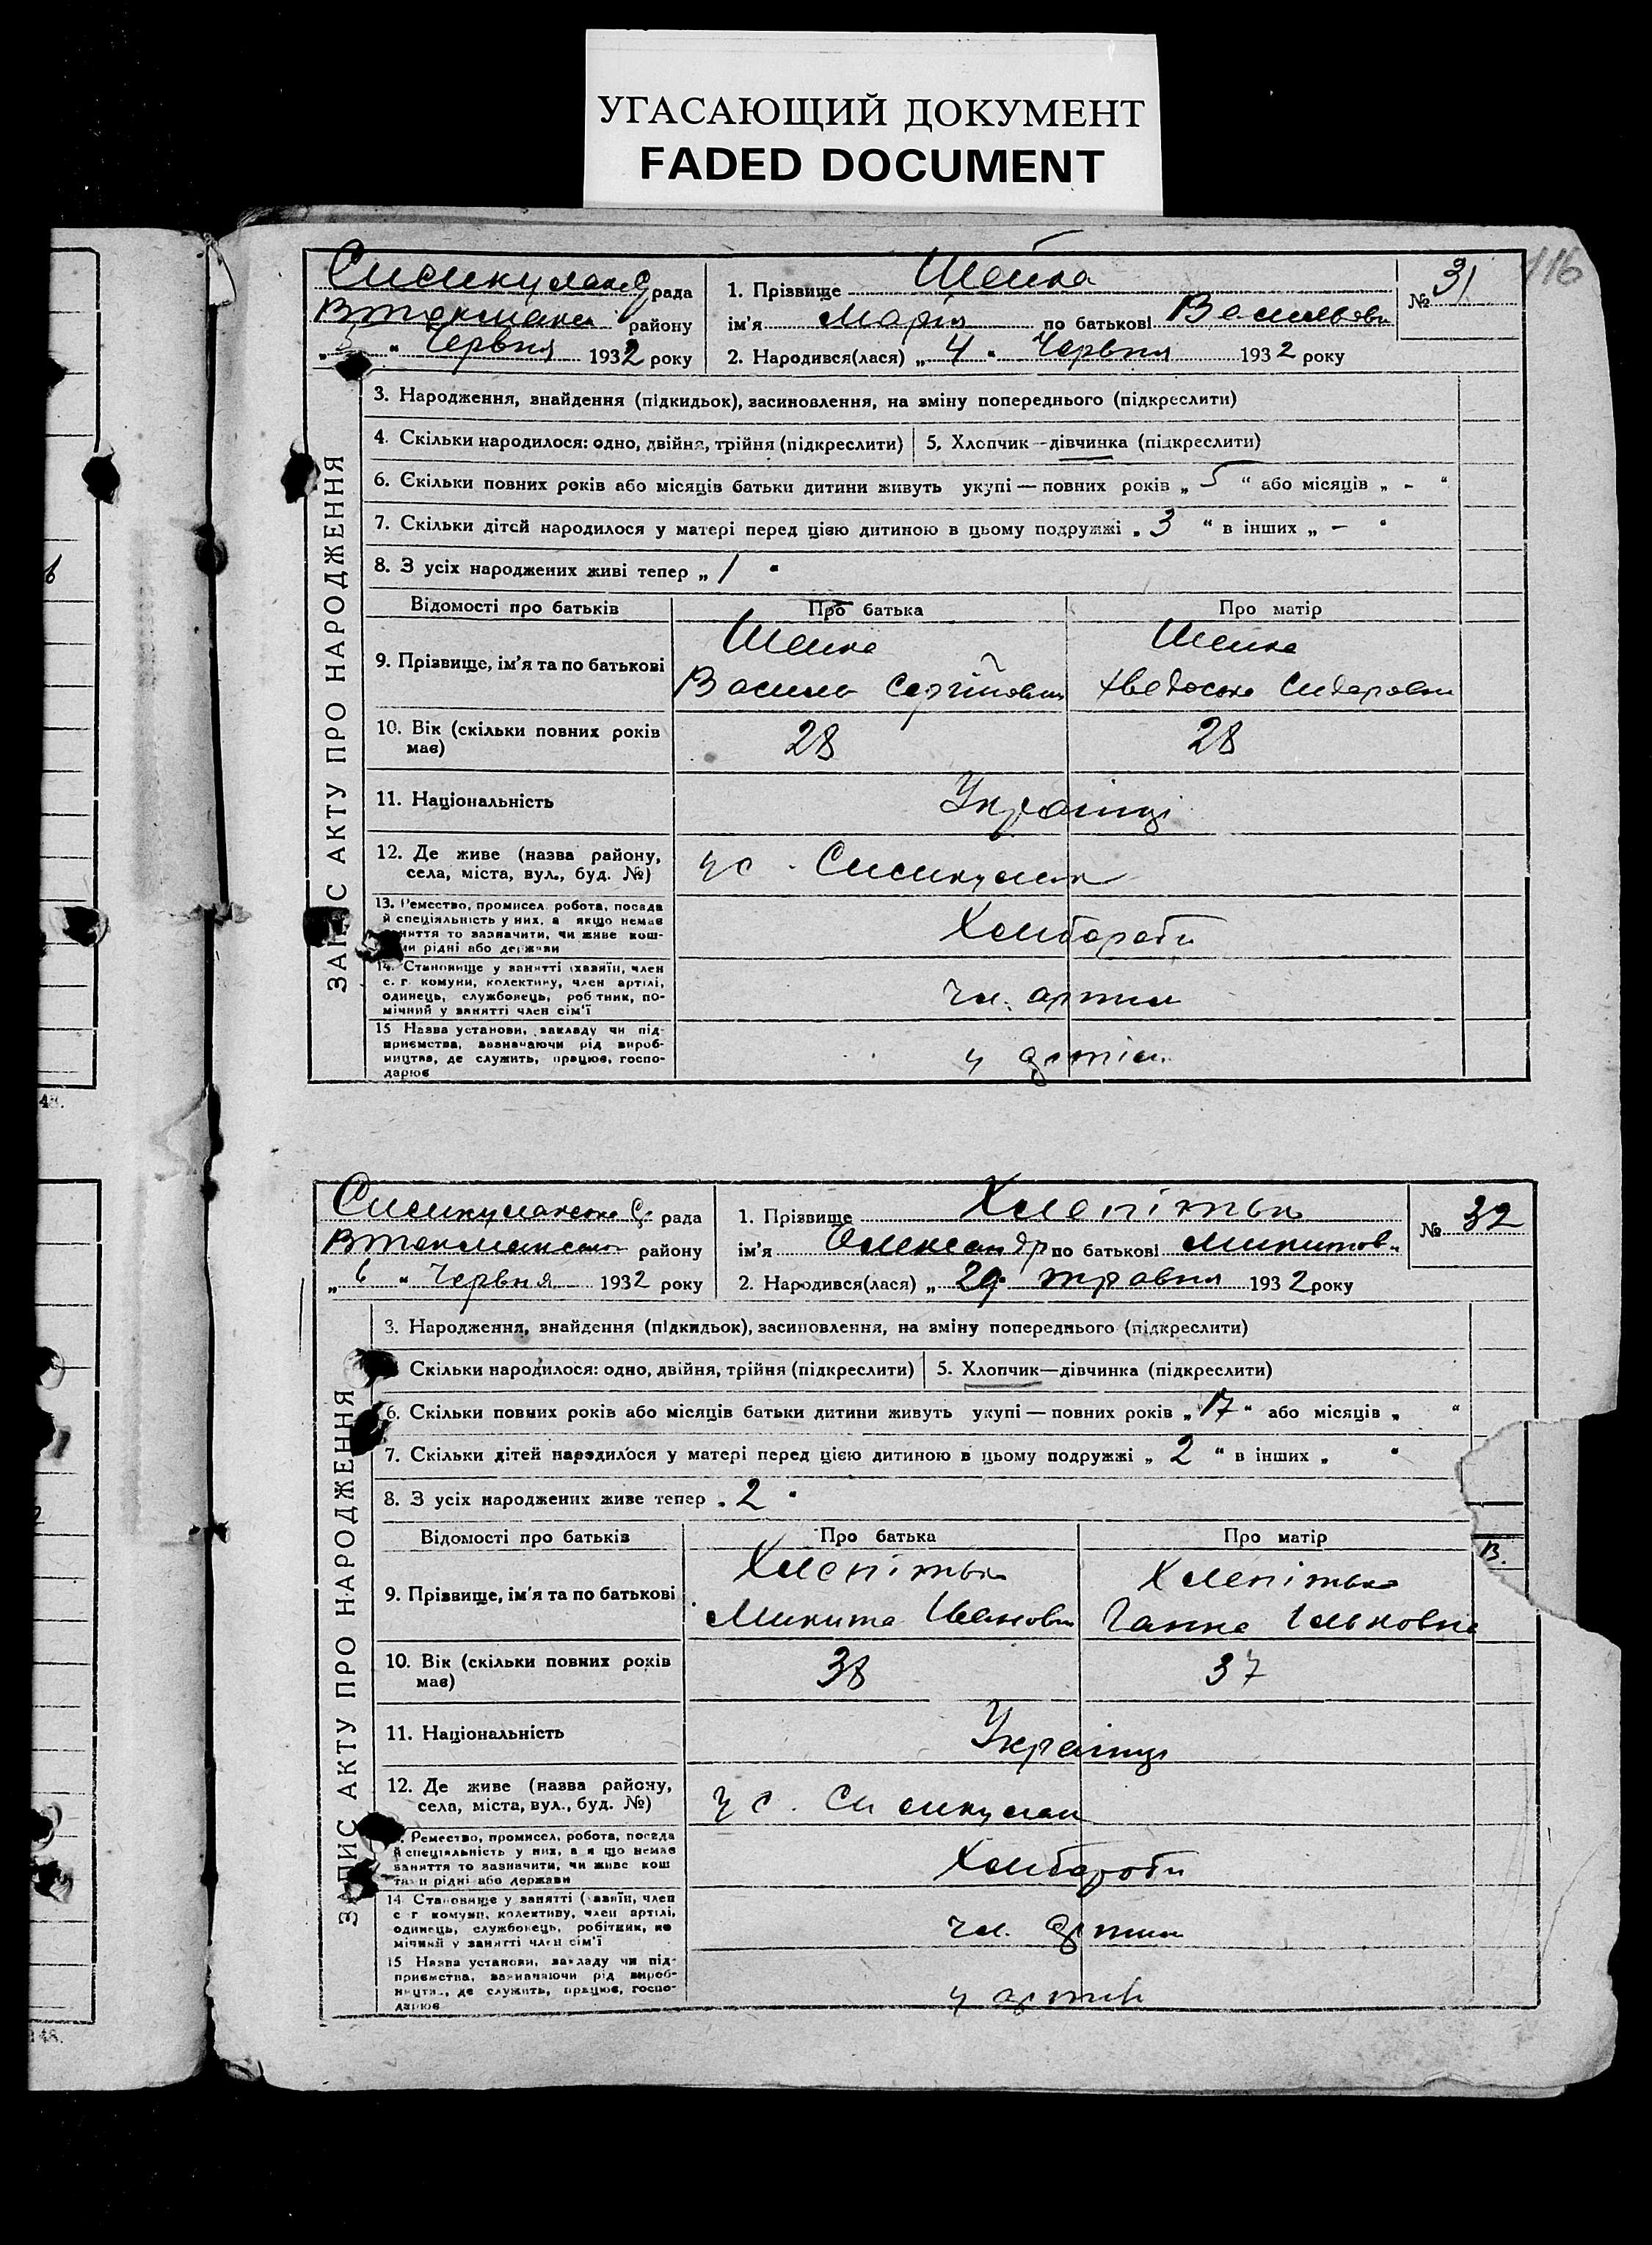 УГАСАЮЩИЙ ДОКУМЕНТ
FADED DOCUMENT
116
рада
району
„ 5 “ Червня 1932 року
1. Прізвище Шейка
ім'я Марія по батькові Васильевн
2. Народився(лася) „ 4 “ Червня 1932 року
№ 31
ЗАПИС АКТУ ПРО НАРОДЖЕННЯ
3. Народження, знайдення (підкидьок), засиновлення, на зміну попереднього (підкреслити)
4. Скільки народилося: одно, двійня, трійня (підкреслити)
5. Хлопчик—дівчинка (підкреслити)
6. Скільки повних років або місяців батьки дитини живуть укупі — повних років „ 5 “ або місяців „ - “
7. Скільки дітей народилося у матері перед цією дитиною в цьому подружжі „ 3 “ в інших „ - “
8. З усіх народжених живі тепер „ 1 “
Відомості про батьків
Про батька
Про матір
9. Прізвище, ім'я та по батькові
Шейка
Василь Сергійович
Шейка
Сидоровн
10. Вік (скільки повних років
має)
28
28
11. Національність
Українці
12. Де живе (назва району,
села, міста, вул., буд. №)
у с.
13. Ремество, промисел, робота, посада
й спеціяльність у них, а якщо немає
заняття то зазначити, чи живе кош-
ми рідні або держави
Хлібороби
14. Становище у занятті (хазяїн, член
с. г. комуни, колективу, член артілі,
одинець, службовець, робтник, по-
мічний у занятті член сім'ї
чл. артілі
15 Назва установи, закладу чи під-
приємства, зазначаючи рід вироб-
ництва, де служить, працює, госпо-
дарює
у артіл.
48.
рада
району
„ 6 “ Червня 1932 року
1. Прізвище Хлепітько
ім'я Олександр по батькові Микитов
2. Народився(лася) „ 29 “ травня 1932 року
№ 32
ЗАПИС АКТУ ПРО НАРОДЖЕННЯ
3. Народження, знайдення (підкидьок), засиновлення, на зміну попереднього (підкреслити)
Скільки народилося: одно, двійня, трійня (підкреслити)
5. Хлопчик—дівчинка (підкреслити)
6. Скільки повних років або місяців батьки дитини живуть укупі — повних років „ 17 “ або місяців „ “
7. Скільки дітей народилося у матері перед цією дитиною в цьому подружжі „ 2 “ в інших „ “
8. З усіх народжених живе тепер „ 2 “
Відомості про батьків
Про батька
Про матір
В.
9. Прізвище, ім'я та по батькові
Хлепітько
Микита Іванович
Хлепітько
Ганна Ільковна
10. Вік (скільки повних років
має)
38
37
11. Національність
Українці
12. Де живе (назва району,
села, міста, вул., буд. №)
у с.
Ремество, промисел, робота, посада
й спеціяльність у них, а я що немає
заняття то зазначити, чи живе кош
та и рідні або держави
Хлібороби
14 Становище у занятті ( авяїн, член
с г комуни, колективу, член артілі,
одинець, службовець, робітник, по
мічний у занятті член сім'ї
чл. артілі
15 Назва установи, закладу чи під-
приємства, зазначаючи рід вироб-
ництв., де служить, працює, госпо-
дарює
у артілі
148.